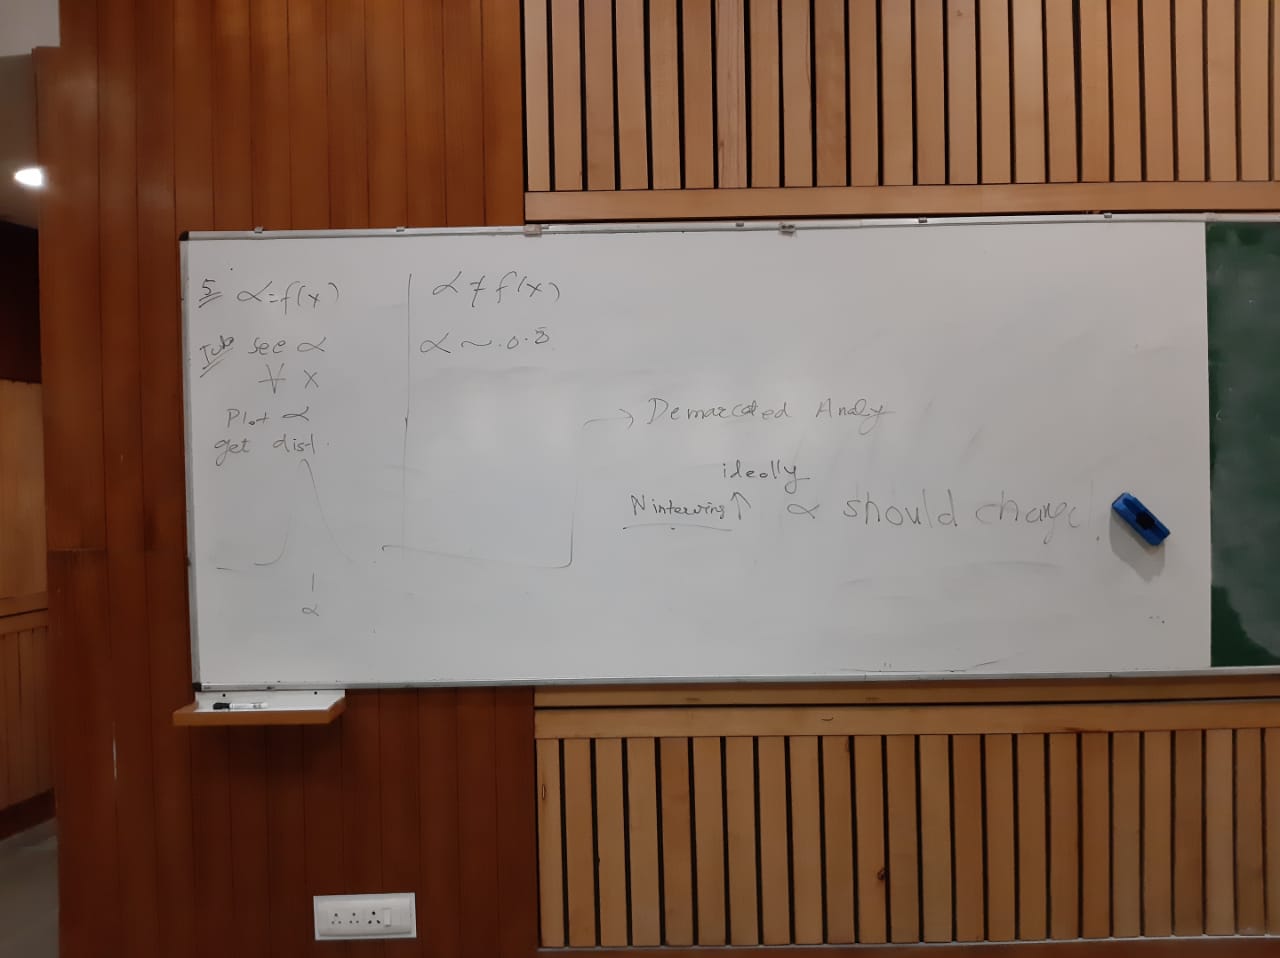 5 α=f(x)
see α
∀ x
Plot α
get dist.
α
α ≠ f(x)
α ~ 0.8
→ Demarcated Analy
ideally
N ↑ α should change!